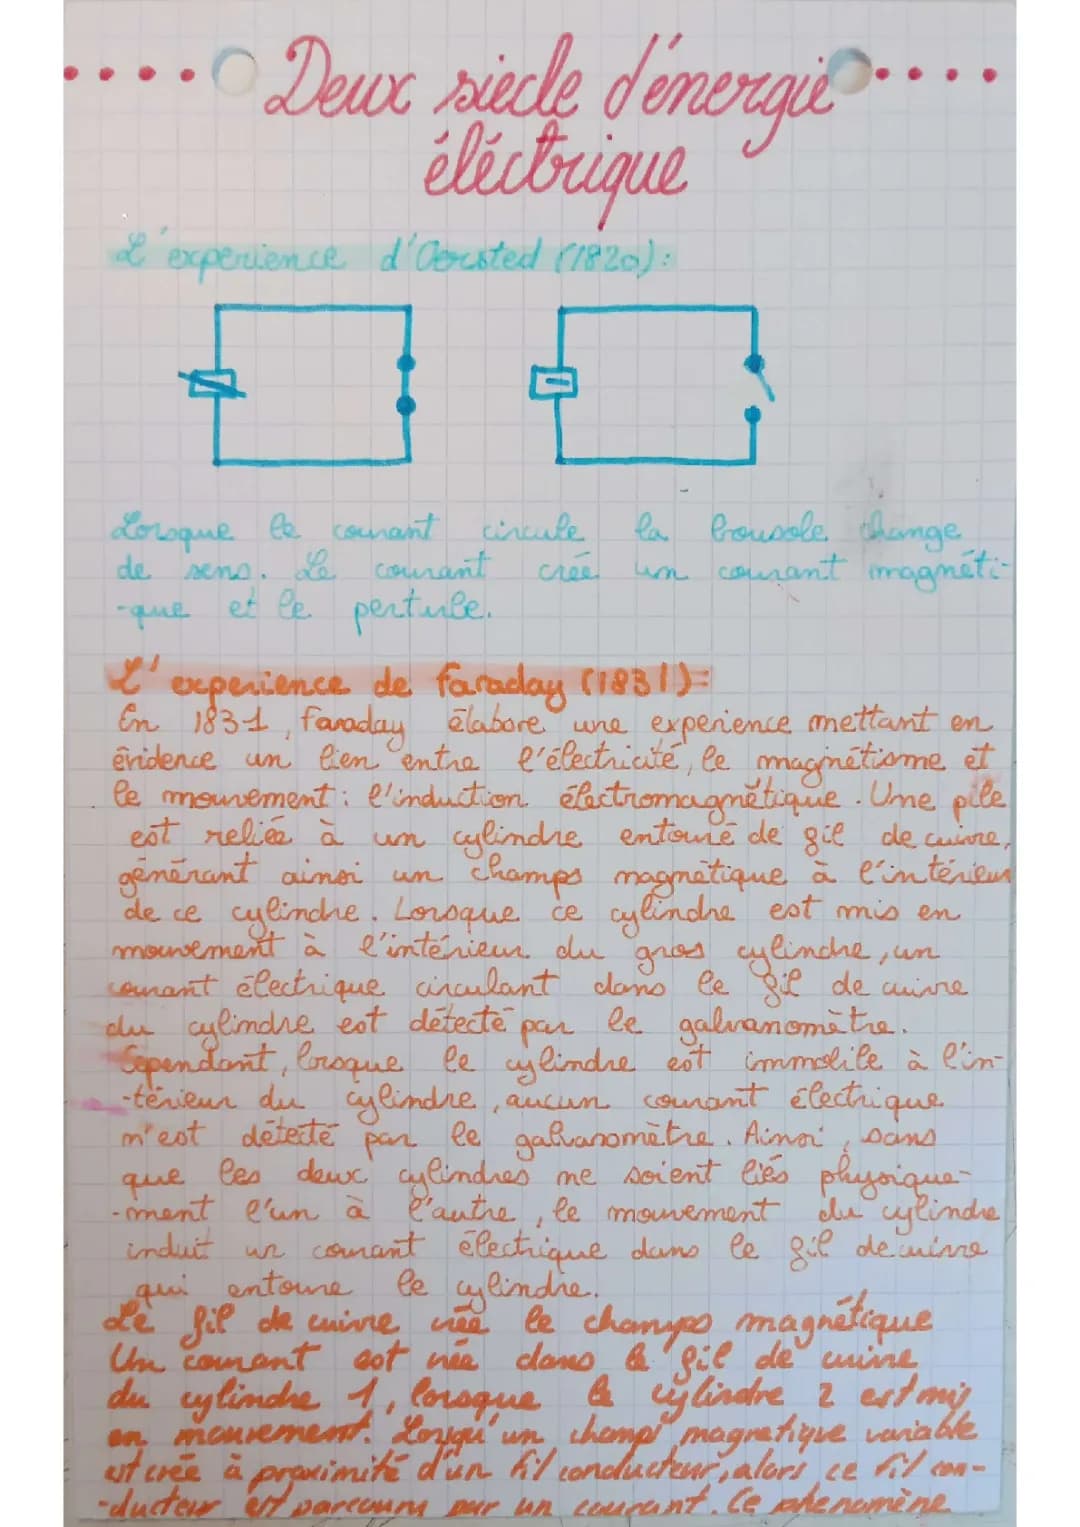 Deux siecle d'énergie
éléctrique
L'experience d'Oersted (1820):
Lorsque le courant circule la bousole change
de sens. Le courant créé un courant magnéti-
-que et le perturbe.
L'experience de faraday (1831)=
En 1831, Faraday élabore une experience mettant en
évidence un lien entre l'électricité, le magnétisme et
le mouvement: l'induction électromagnétique. Une pile
est reliée à un cylindre entouré de fil de cuivre,
générant ainsi un champs magnétique à l'intérieur
de ce cylindre. Lorsque ce cylindre est mis en
mouvement à l'intérieur du gros cylindre, un
courant électrique circulant dans le fil de cuivre
du cylindre est détecté par le galvanomètre.
Cependant, lorsque le cylindre est immobile à l'in-
-térieur du cylindre, aucun courant électrique
n'est détecté par le galvanomètre. Ainsi, sans
que les deux cylindres ne soient liés physique-
-ment l'un à l'autre, le mouvement du cylindre
induit un courant électrique dans le fil de cuivre
qui entoure le cylindre.
Le fil de cuivre crée le champs magnétique
Un courant est crée dans le fil de cuivre
du cylindre 1, lorsque le cylindre 2 est mis
en mouvement. Lorsqu'un champ magnetique variable
est crée à proximité d'un fil conducteur, alors ce fil con-
-ducteur est parcouru par un courant. Ce phenomène